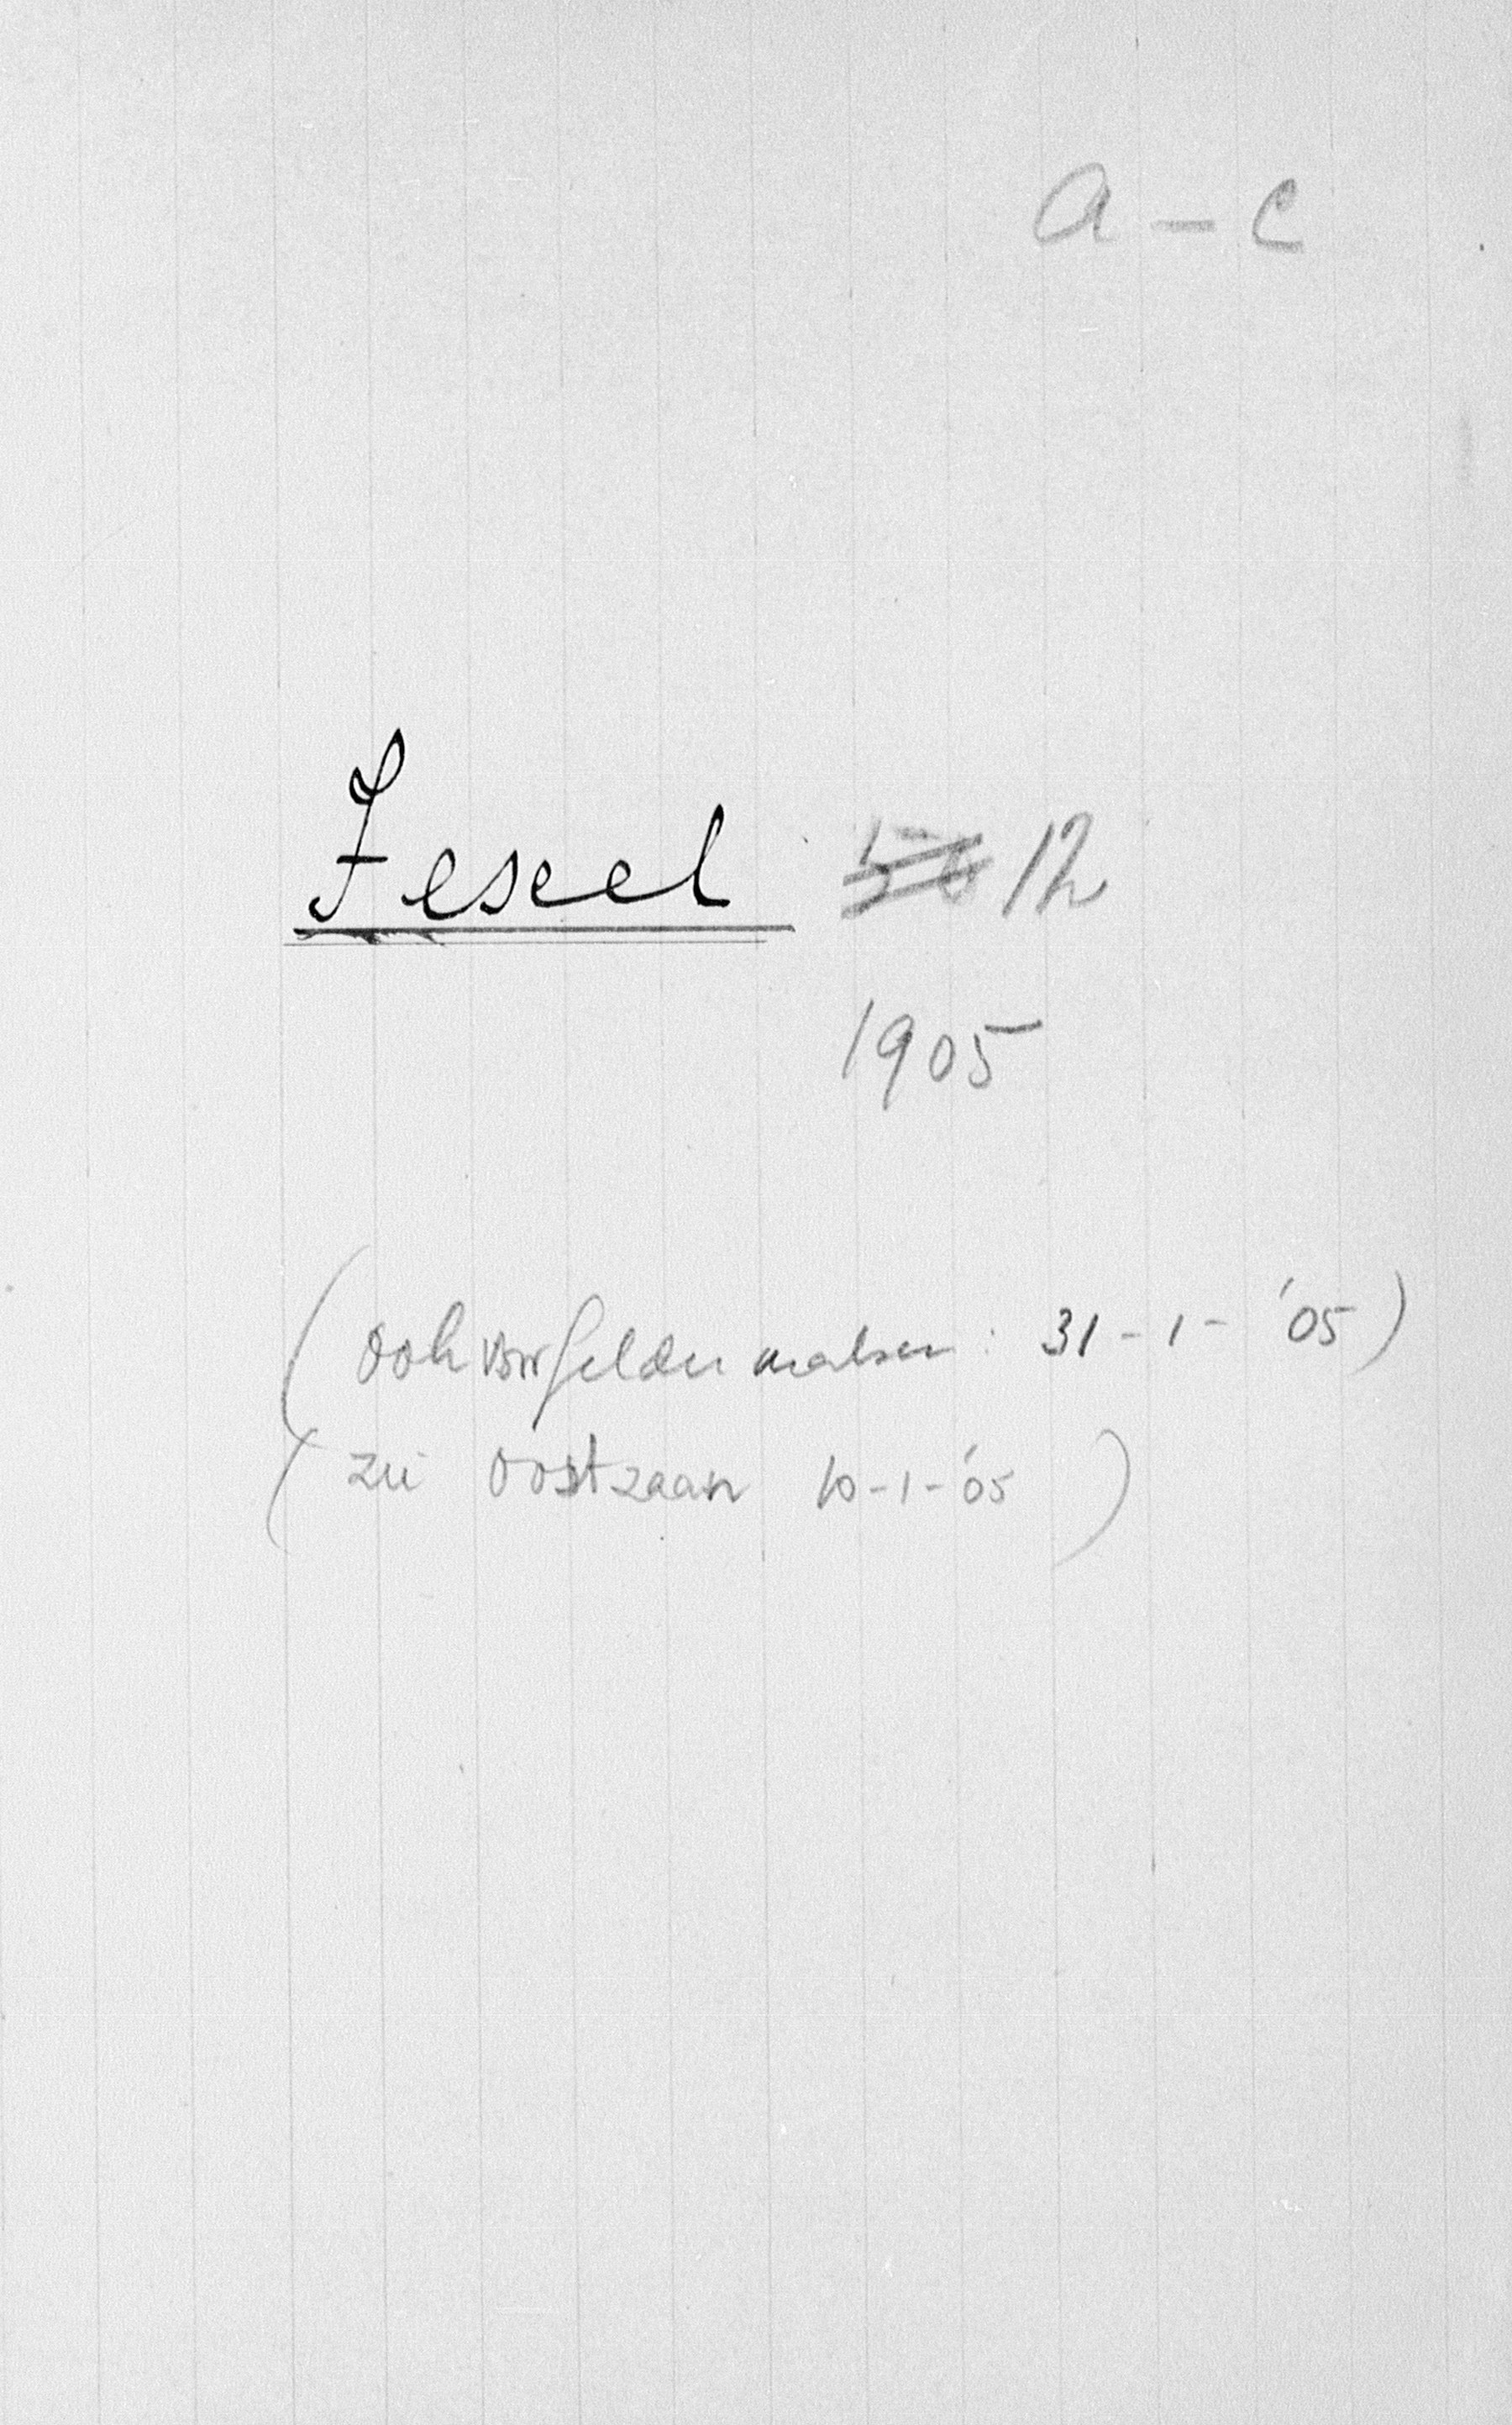 a - c
Texel 12
1905
(ook voor Geldermalsen: 31-1-'05)
(zie Oostzaan 10-1-'05)